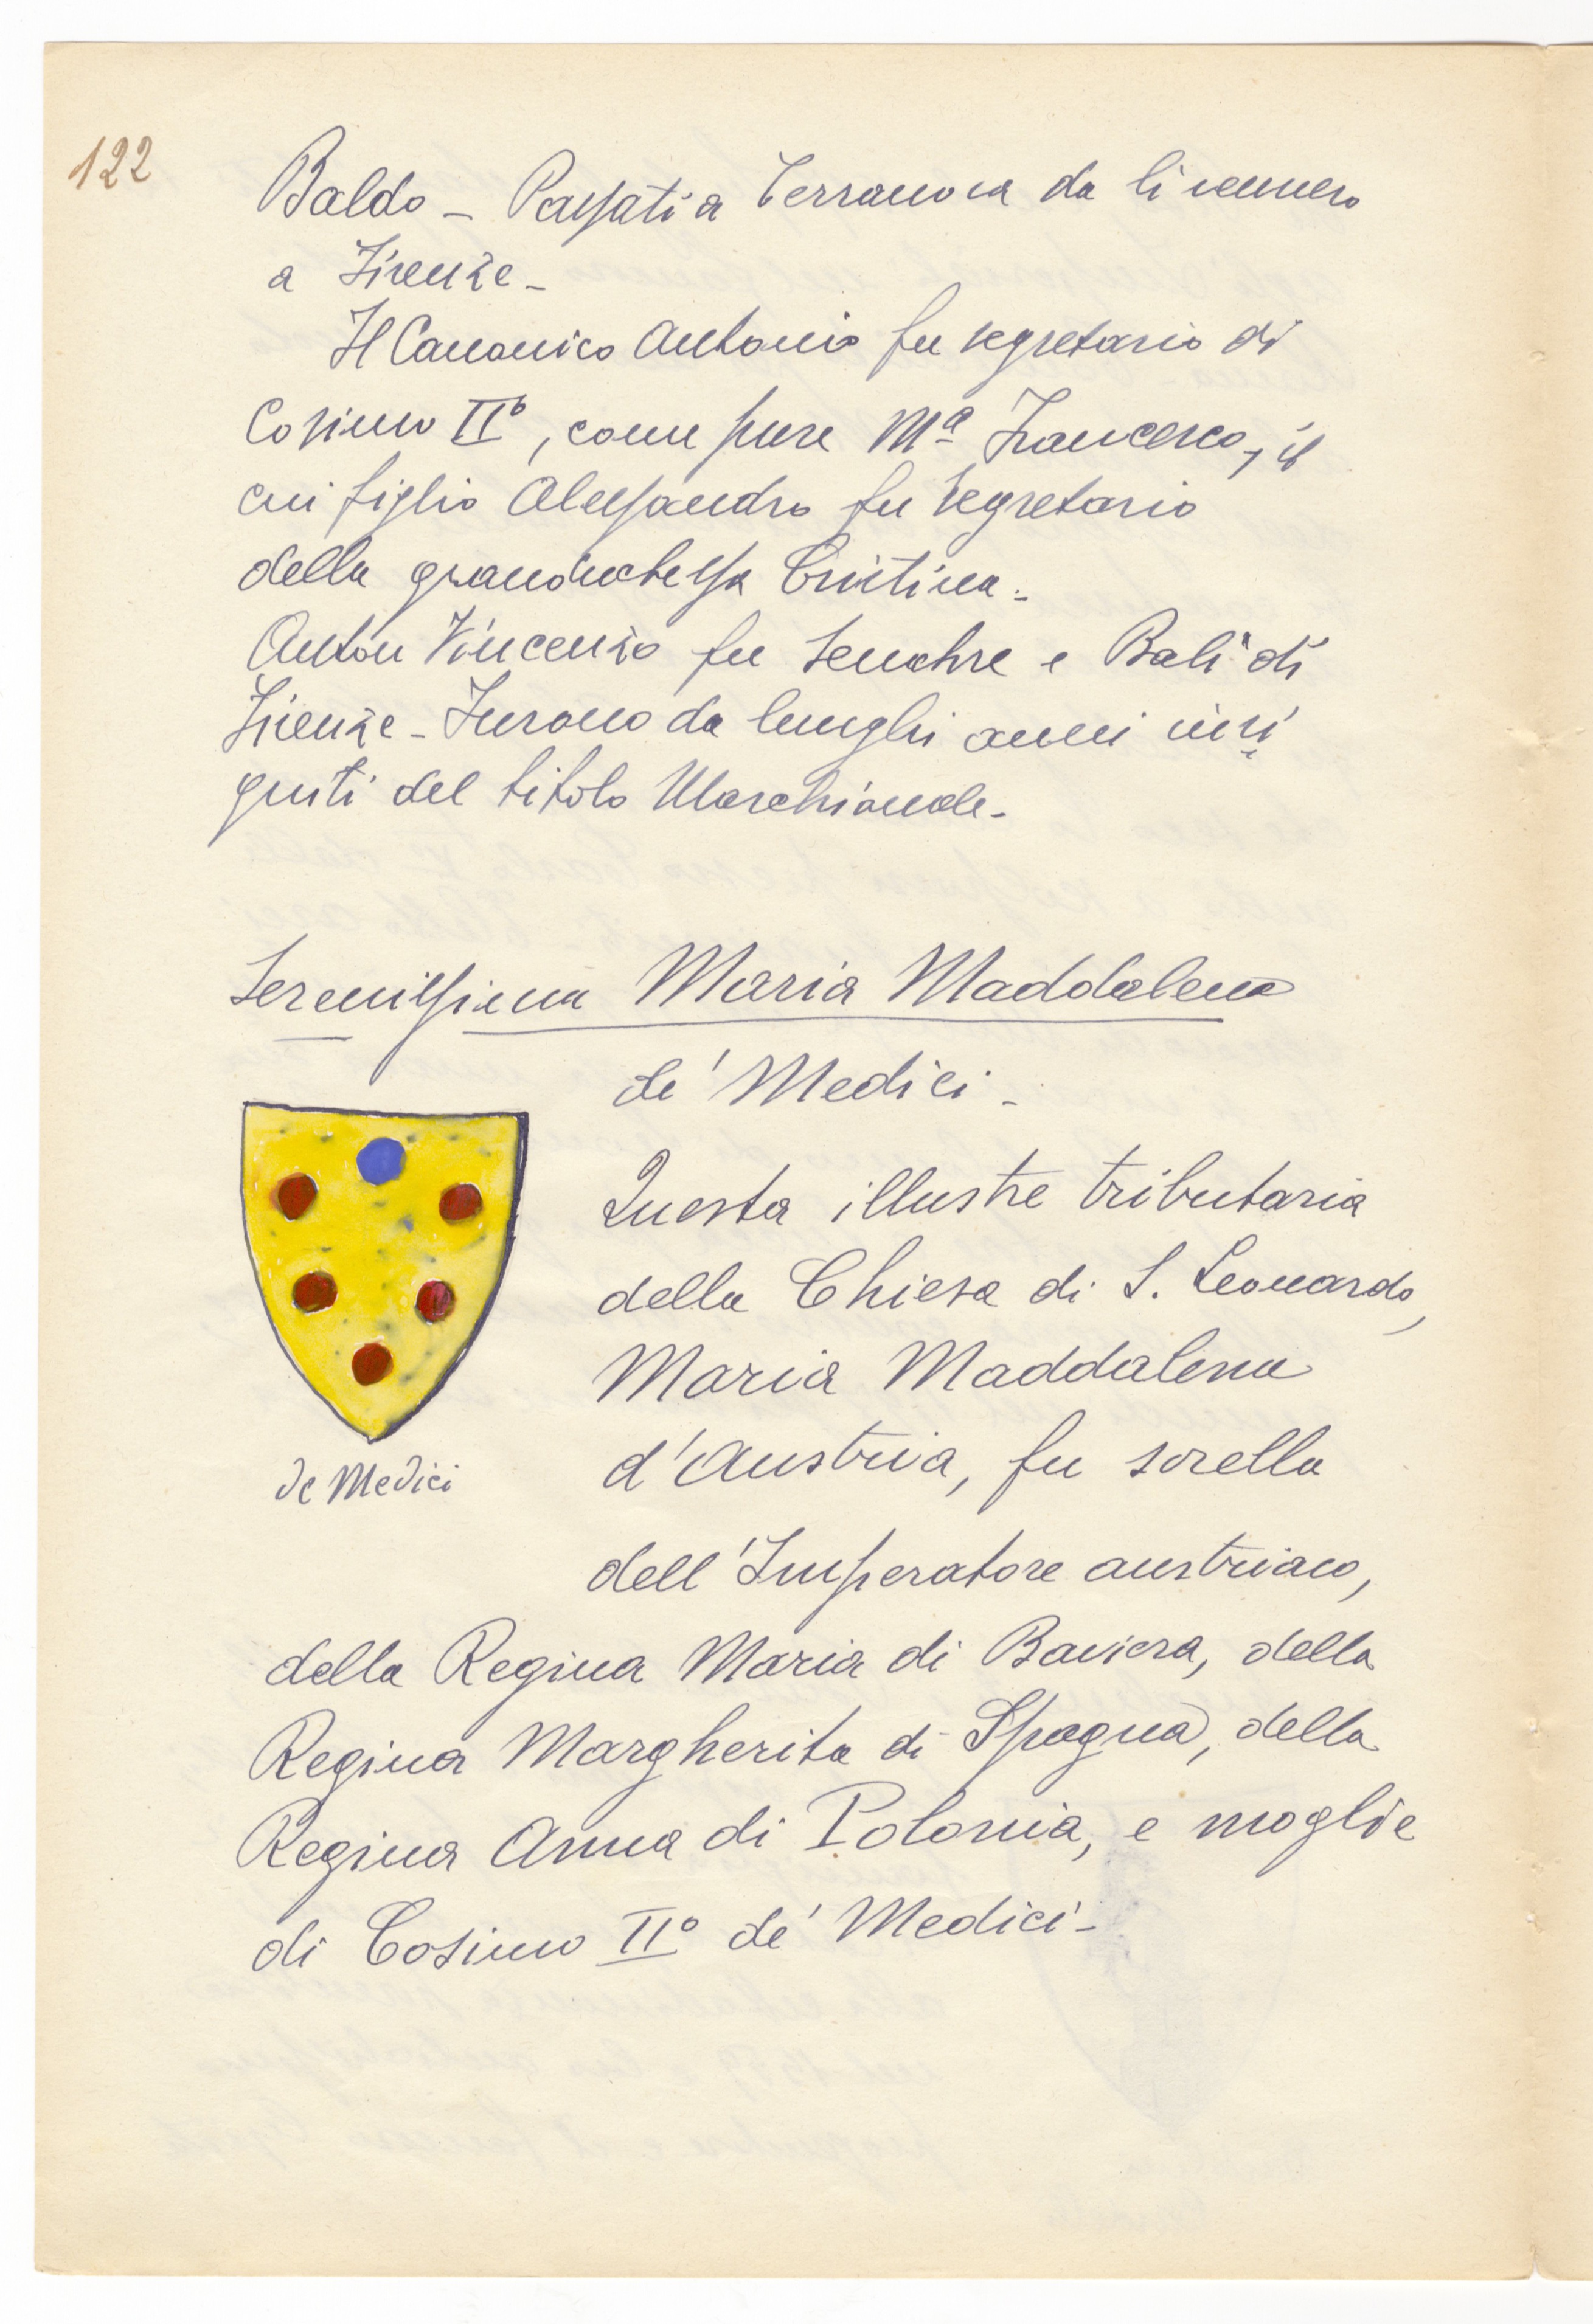 122
Baldo - Passati a Terranova da lì vennero
a Firenze -
Il Canonico Antonio fu segretario di
Cosimo II°, come pure Mª Francesco, il
cui figlio Alessandro fu segretario
della granduchessa Cristina -
Anton Vincenzo fu Senatore e Balì di
Firenze - Furono da lunghi anni insi
gniti del titolo Marchionale -
Serenissima Maria Maddalena
de' Medici -
Questa illustre tributaria
della Chiesa di S. Leonardo,
Maria Maddalena
de Medici
d'Austria, fu sorella
dell'Imperatore austriaco,
della Regina Maria di Baviera, della
Regina Margherita di Spagna, della
Regina Anna di Polonia, e moglie
di Cosimo II° de' Medici -